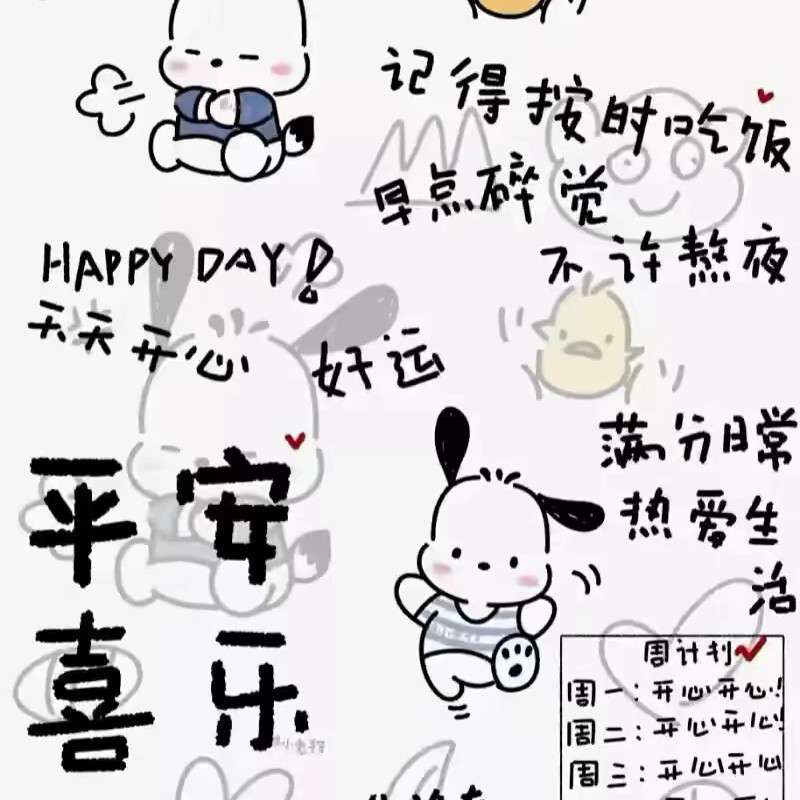 记得按时吃饭
早点碎觉
不许熬夜
HAPPY DAY!
天天开心
好运
满分日常
热爱生
活
平安
喜乐
周计划
周一:开心开心!
周二:开心开心!
周三:开心开心